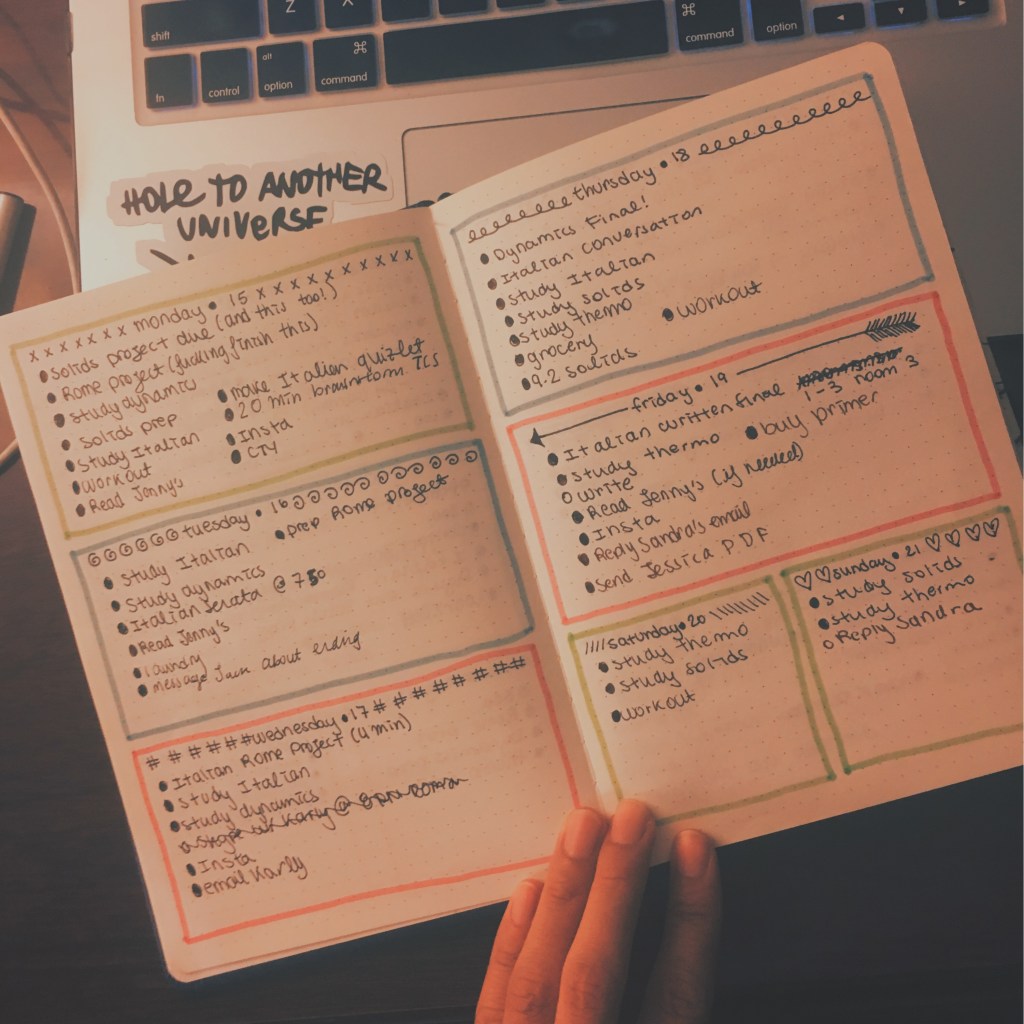 shift
Z
X
⌘
command
option
◄
▼
►
fn
control
alt
option
⌘
command
HOLE TO ANOTHER
UNIVERSE
x x x x x x monday • 15 x x x x x x x x x x
• Solids project due (and this too!)
• Rome project (fucking finish this)
• Study dynamics
• Solids prep
• Study Italian
• Workout
• Read Jenny's
• make Italian quizlet
• 20 min brainstorm TCS
• Insta
• CTY
tuesday • 16
• Study Italian
• prep Rome project
• Study dynamics
• Italian Serata @ 730
• Read Jenny's
• laundry
• message about ending
# # # # # # wednesday • 17 # # # # # # # #
• Italian Rome Project (4 min)
• Study Italian
• Study dynamics
Karly @
• Insta
• email Karly
thursday • 18
• Dynamics Final!
• Italian conversation
• Study Italian
• Study solids
• Study thermo
• workout
• grocery
• 9.2 solids
friday • 19
• Italian written final 1-3 room 3
• Study thermo
• buy primer
○ write
• Read Jenny's (if needed)
• Insta
• Reply Sandra's email
• Send Jessica PDF
//// saturday • 20 \\\\\\\\
• Study thermo
• Study solids
• workout
♡ ♡ sunday • 21 ♡ ♡ ♡ ♡
• Study solids
• Study thermo
○ Reply Sandra